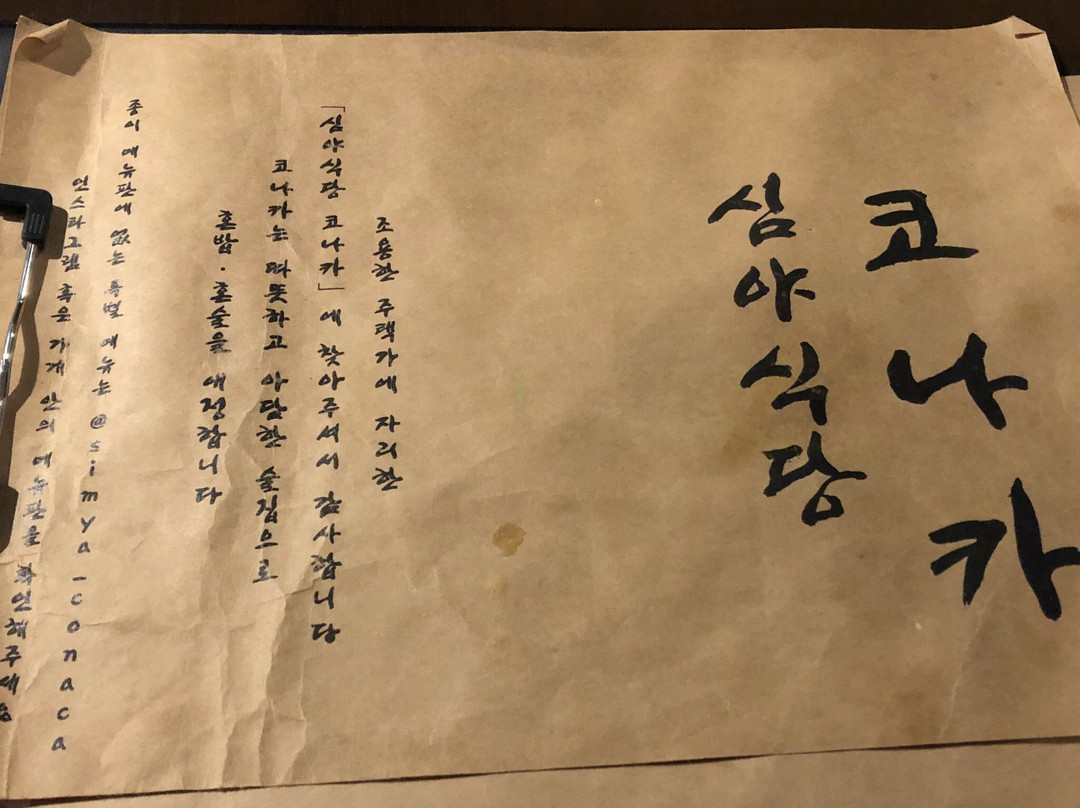 코나카
심야식당
조용한 주택가에 자리한
「심야식당 코나카」에 찾아주셔서 감사합니다
코나카는 따뜻하고 아담한 술집으로
혼밥·혼술을 애정합니다
종이 메뉴판에 없는 특별 메뉴는 @simya_conaca
인스타그램 혹은 가게 안의 메뉴판을 확인해주세요